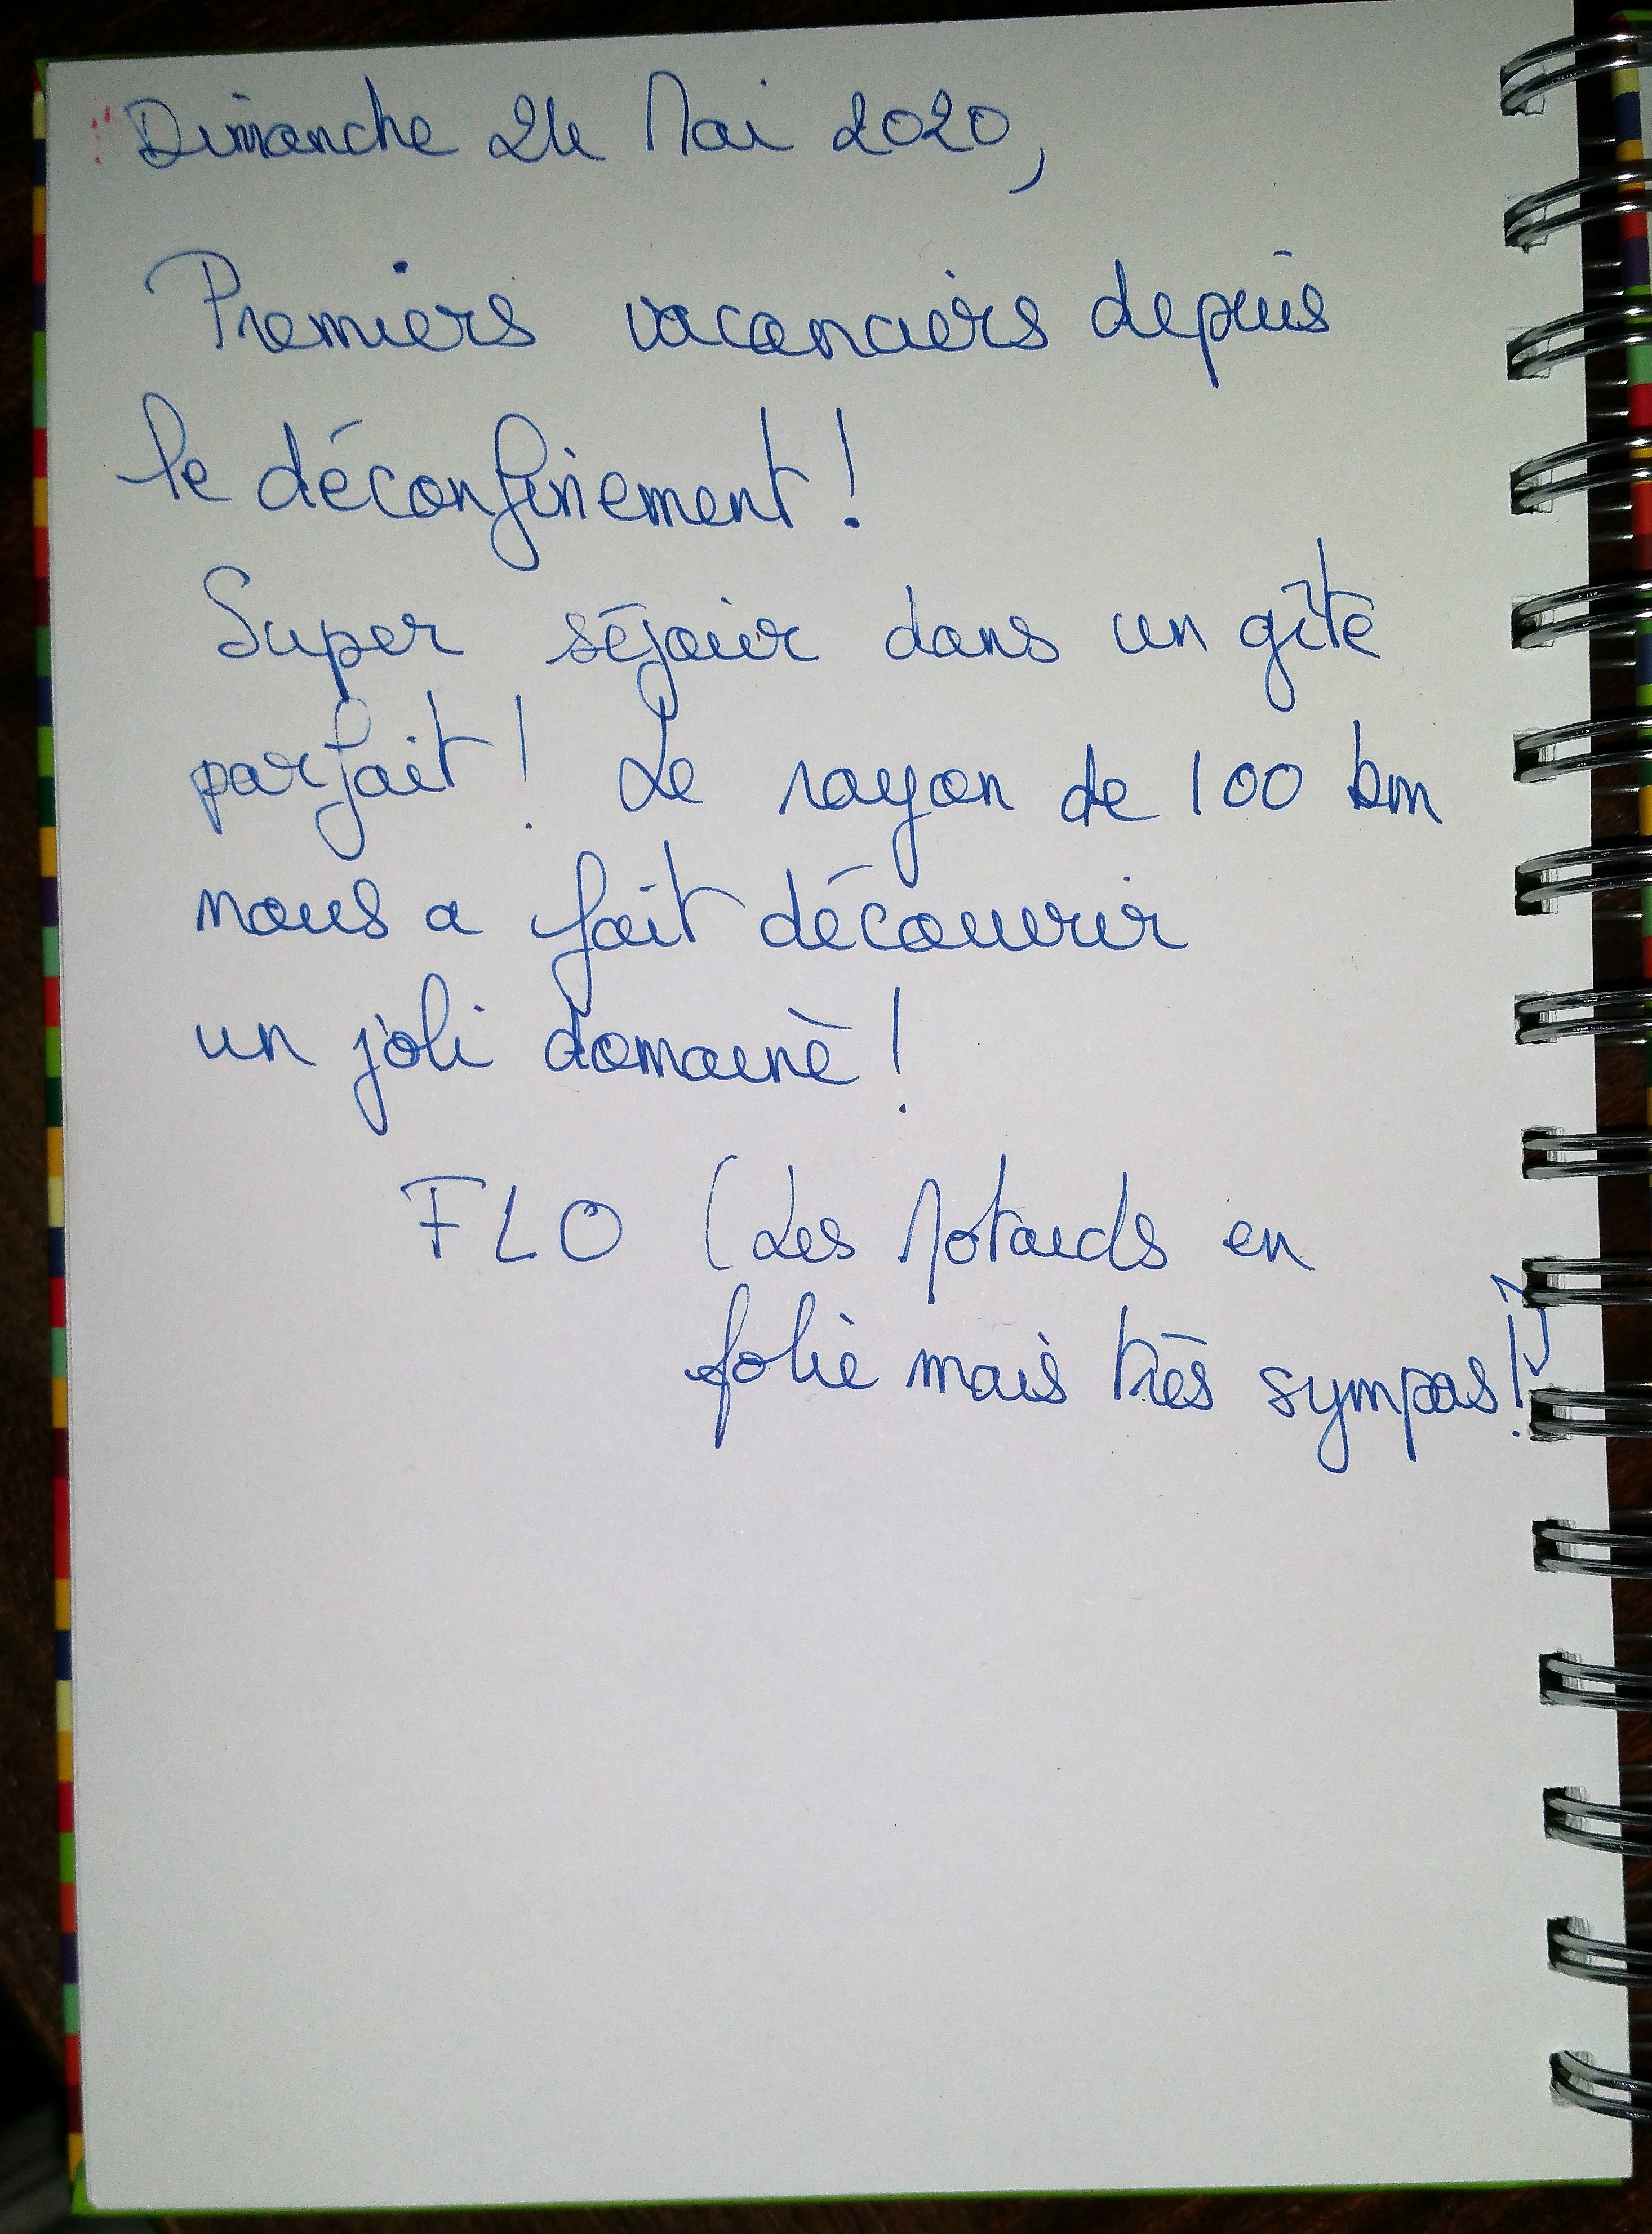 Dimanche 24 Mai 2020,
Premiers vacanciers depuis
le déconfinement !
Super séjour dans un gîte
parfait ! Le rayon de 100 km
nous a fait découvrir
un joli domaine !
FLO (Les Motards en
folie mais très sympas !)